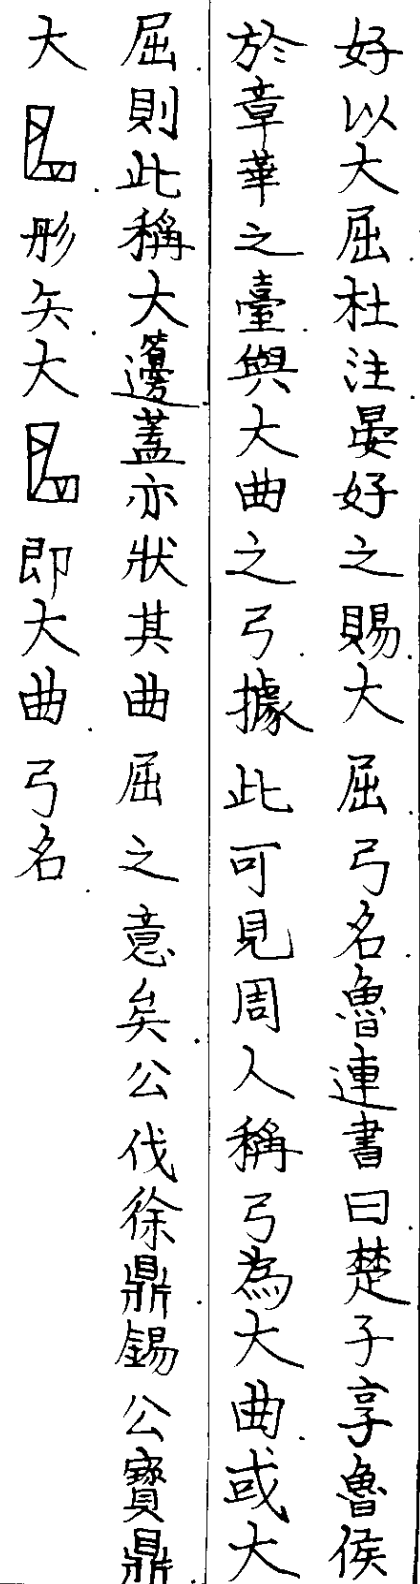 好以大屈杜注晏好之賜大屈弓名魯連書曰楚子享魯侯
於章華之臺與大曲之弓據此可見周人稱弓為大曲或大
屈則此稱大籩蓋亦狀其曲屈之意矣公伐徐鼎錫公寶鼎
大彤矢大即大曲弓名